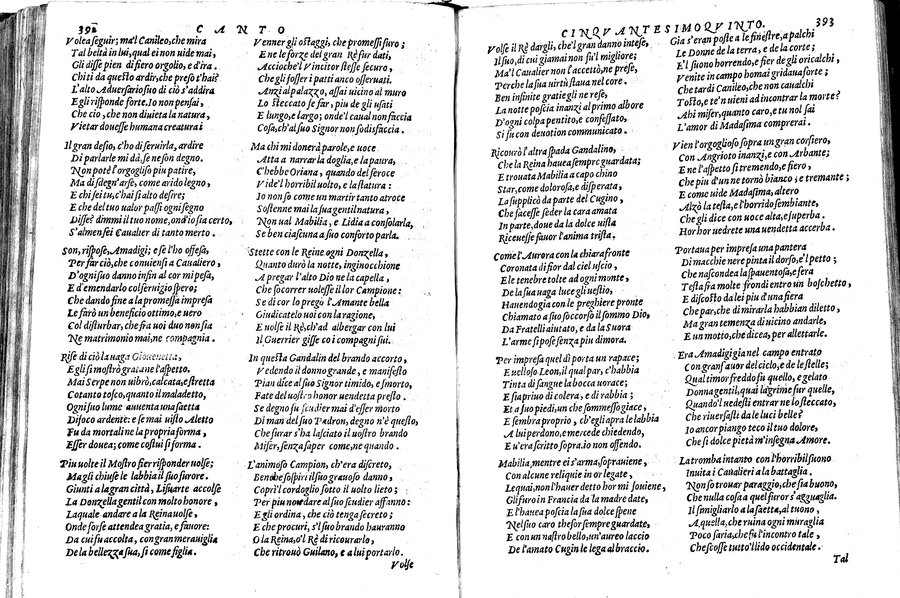 392 CANTO
Volea seguir; ma'l Canileo, che mira
Tal beltà in lui, qual ei non vide mai,
Gli disse pien di fiero orgolio, e d'ira.
Chi ti da questo ardir, che preso t'hai?
L'alto Adversario suo di ciò s'addira
Egli risponde forte. Io non pensai,
Che ciò, che non divieta la natura,
Vietar dovesse humana creatura
Il gran desio, c'ho di servirla, ardire
Di parlarle mi dà, se ne son degno.
Non potè l'orgoglioso piu patire,
Ma di sdegn'arse, come arido legno,
E chi sei tu, c'hai sì alto desire;
E che del tuo valor passi ogni segno
Disse? dimmi il tuo nome, ond'io sia certo,
S'almen sei Cavalier di tanto merto.
Son, rispose, Amadigi; e se l'ho offesa,
Per far ciò, che conviensi a Cavaliero,
D'ogni suo danno infin al cor mi pesa,
E d'emendarlo col servigio spero;
Che dando fine a la promessa impresa
Le farò un beneficio ottimo, e vero
Col disturbar, che fra voi duo non sia
Ne matrimonio mai, ne compagnia.
Rise di ciò la vaga Giovenetta,
E gli si mostrò grata ne l'aspetto.
Mai Serpe non vibrò, calcata, e stretta
Cotanto tosco, quanto il maladetto,
Ogni suo lume aventa una saetta
Di foco ardente: e se mai visto Aletto
Fu da mortali ne la propria forma,
Esser dovea; come costui si forma.
Piu volte il Mostro fier risponder volse;
Ma gli chiuse le labbia il suo furore.
Giunti a la gran città, Lisuarte accolse
La Donzella gentil con molto honore,
La quale andare a la Reina volse,
Onde forse attendea gratia, e favore:
Da cui fu accolta, con gran meraviglia
De la bellezza sua, sì come figlia.
Venner gli ostaggi, che promessi furo;
E ne le forze del gran Rè fur dati,
Acciochè'l vincitor stesse securo,
Che gli fosser i patti anco osservati.
Anzi al palazzo, assai vicino al muro
Lo steccato fe far, piu de gli usati
E lungo, e largo; onde'l caval non faccia
Cosa, ch'al suo Signor non sodisfaccia.
Ma chi mi donerà parole, e voce
Atta a narrar la doglia, e la paura,
C'hebbe Oriana, quando del feroce
Vide l'horribil volto, e la statura:
Io non so come un martir tanto atroce
Sostenne mai la sua gentil natura,
Non val Mabilia, e Lidia a consolarla,
Se ben ciascuna a suo conforto parla.
Stette con le Reine ogni Donzella,
Quanto durò la notte, inginocchione
A pregar l'alto Dio ne la capella,
Che socorrer volesse il lor Campione:
Se di cor lo pregò l'Amante bella
Giudicatelo voi con la ragione,
E volse il Rè, ch'ad albergar con lui
Il Guerrier gisse co i compagni sui.
In questa Gandalin del brando accorto,
Vedendo il donno grande, e manifesto
Pian dice al suo Signor timido, e smorto,
Fate del vostro honor vendetta presto.
Se degno fu scudier mai d'esser morto
Di man del suo Padron, degno n'è questo,
Che furar s'ha lasciato il vostro brando
Miser, senza saper come, ne quando.
L'animoso Campion, ch'era discreto,
Benche sospiri il suo gravoso danno,
Coprì'l cordoglio sotto il volto lieto;
Per piu non dare al suo scudier affanno:
E gli ordina, che ciò tenga secreto;
E che procuri, s'l suo brando havranno
O la Reina, o'l Rè di ricovrarlo,
Che ritrovò Guilano, e a lui portarlo.
Volse
CINQUANTESIMOQUINTO. 393
Volse il Rè dargli, che'l gran danno intese,
Il suo, di cui giamai non fu'l migliore;
Ma'l Cavalier non l'accettò, ne prese,
Perche la sua virtù stava nel core.
Ben infinite gratie gli ne rese,
La notte poscia inanzi al primo albore
D'ogni colpa pentito, e confessato,
Si fu con devotion communicato.
Ricovrò l'altra spada Gandalino,
Che la Reina havea sempre guardata;
E trovata Mabilia a capo chino
Star, come dolorosa, e disperata,
La supplicò da parte del Cugino,
Che facesse se'der la cara amata
In parte, dove da la dolce vista
Ricevesse favor l'anima trista.
Come l'Aurora con la chiara fronte
Coronata di fior dal ciel uscio,
E le tenebre tolte ad ogni monte,
De la sua vaga luce gli vestio,
Havendo gia con le preghiere pronte
Chiamato a suo soccorso il sommo Dio,
Da Fratelli aiutato, e da la Suora
L'arme si pose senza piu dimora.
Per impresa quel dì porta un rapace;
E velloso Leon, il qual par, c'habbia
Tinta di sangue la bocca vorace;
E sia privo di colera, e di rabbia;
Et a suo piedi, un che sommesso giace,
E sembra proprio, ch'egli apra le labbia
A lui perdono, e mercede chiedendo,
E v'era scritto sopra. io non offendo.
Mabilia, mentre ei s'arma, sopraviene,
Con alcune reliquie in or legate,
Le quai, non l'haver detto hor mi soviene,
Gli furo in Francia da la madre date,
E l'havea poscia la sua dolce spene
Nel suo caro thesor sempre guardate,
E con un nastro bello, un'aureo laccio
De l'amato Cugin le lega al braccio.
Gia s'eran poste a le finestre, a palchi
Le Donne de la terra, e de la corte;
E'l suono horrendo, e fier de gli oricalchi,
Venite in campo homai gridava forte;
Che tardi Canileo, che non cavalchi
Tosto, e te'n vieni ad incontrar la morte?
Ahi miser, quanto caro, e tu nol sai
L'amor di Madasima comprerai.
Vien l'orgoglioso sopra un gran corsiero,
Con Angrioto inanzi, e con Arbante;
E ne l'aspetto sì tremendo, e fiero,
Che piu d'un ne tornò bianco, e tremante;
E come vide Madasima, altero
Alzò la testa, e l'horrido sembiante,
Che gli dice con voce alta, e superba.
Hor hor vedrete una vendetta acerba.
Portava per impresa una pantera
Di macchie nere pinta il dorso, e'l petto;
Che nascondea la spaventosa, e fera
Testa fra molte frondi entro un boschetto,
E discosto da lei piu d'una fiera
Che par, che di mirarla habbian diletto,
Ma gran temenza di vicino andarle.
E un motto, che dicea, per allettarle.
Era Amadigi gia nel campo entrato
Con gran favor del cielo, e de le stelle;
Qual timor freddo fu quello, e gelato
Donna gentil, quai lagrime fur quelle,
Quando'l vedesti entrar ne lo steccato,
Che riversasti da le luci belle?
Io ancor piango teco il tuo dolore,
Che sì dolce pietà m'insegna Amore.
La tromba intanto con l'horribil suono
Invita i Cavalieri a la battaglia.
Non so trovar paraggio, che sia buono,
Che nulla cosa a quel furor s'agguaglia.
Il simigliarlo a la saetta, al tuono,
A quella, che ruina ogni muraglia
Poco saria, che fu l'incontro tale,
Che scosse tutto'l lido occidentale.
Tal